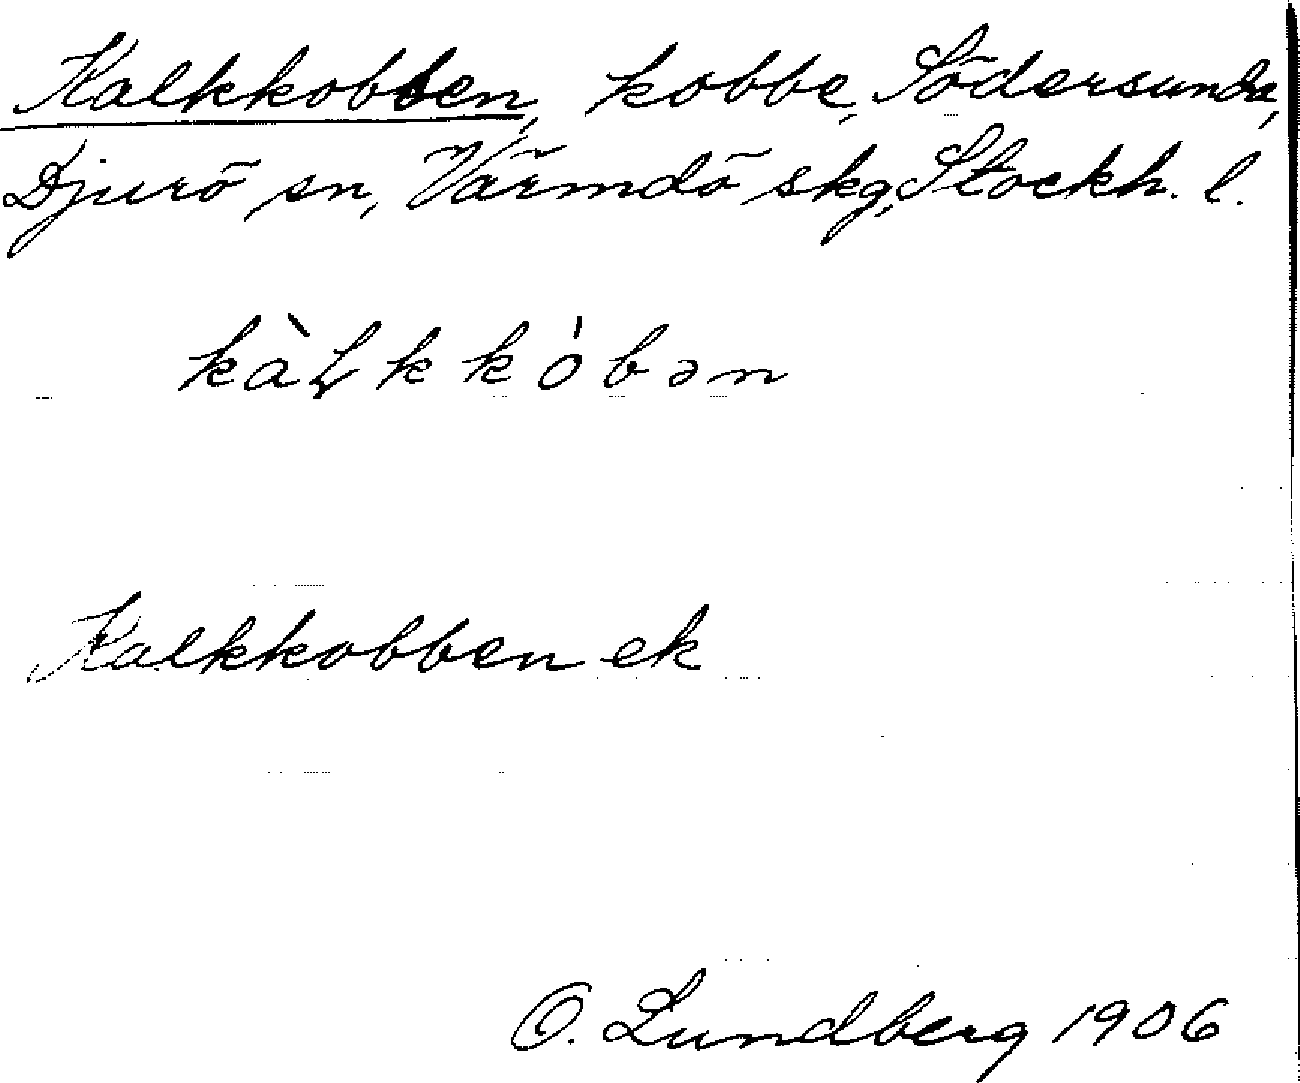 Kalkkobben, kobbe, Södersunda,
Djurö sn, Värmdö skg, Stockh. l.
kàɫkkóbən
Kalkkobben ek
O. Lundberg 1906